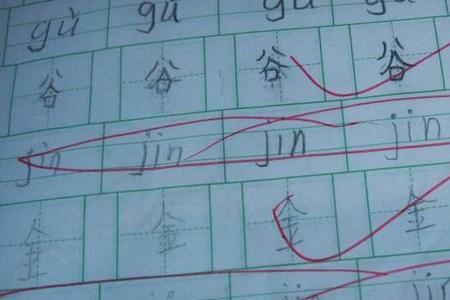 gǔ gǔ gǔ gǔ
谷 谷 谷 谷
jin jin jin jin
金 金 金 金